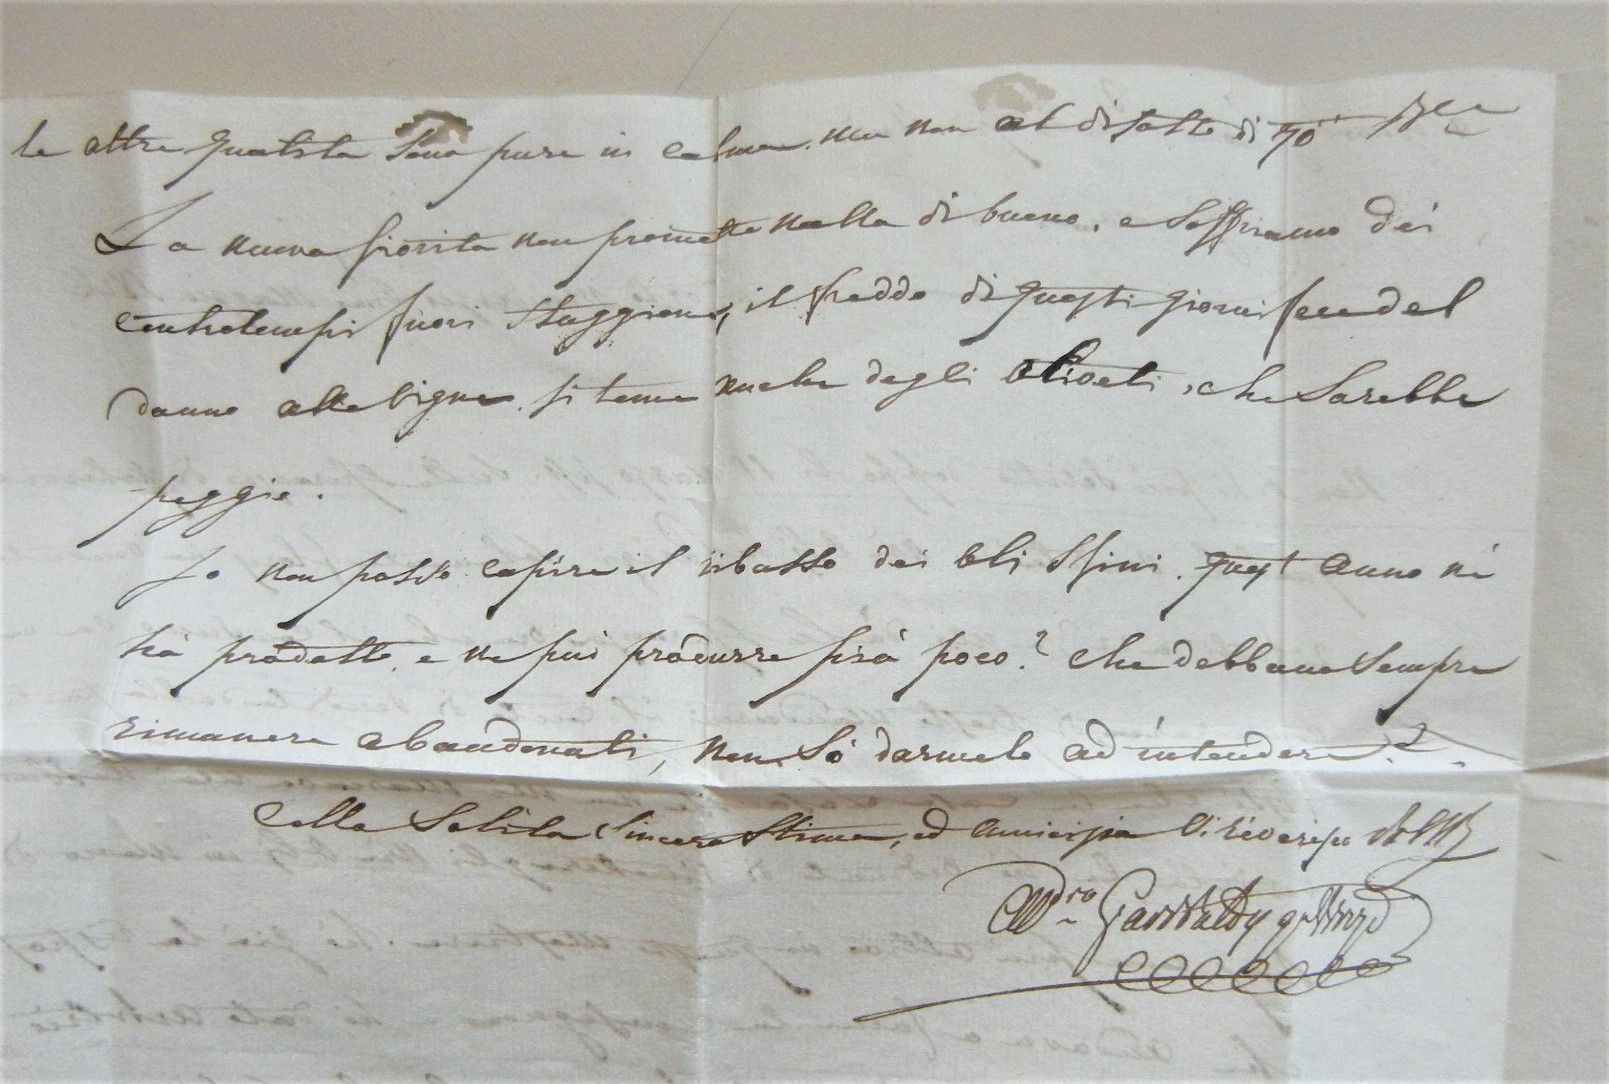 le altre qualità sono pure in calma, ma non al disotto di 70
La nuova fiorita non promette nulla di buono, e soffriamo dei
controtempi fuori staggione, il freddo di questi giorni fece del
danno alle vigne, si teme anche degli oliveti, che sarebbe
peggio.
Io non posso capire il ribasso dei oli sfini. quest anno ne
hà prodotto, e ne può produrre sì poco? che debbano sempre
rimanere abbandonati, non sò darmelo ad intendere?
Colla solita sincera stima, ed amicizia Vi riverisco
And.ro